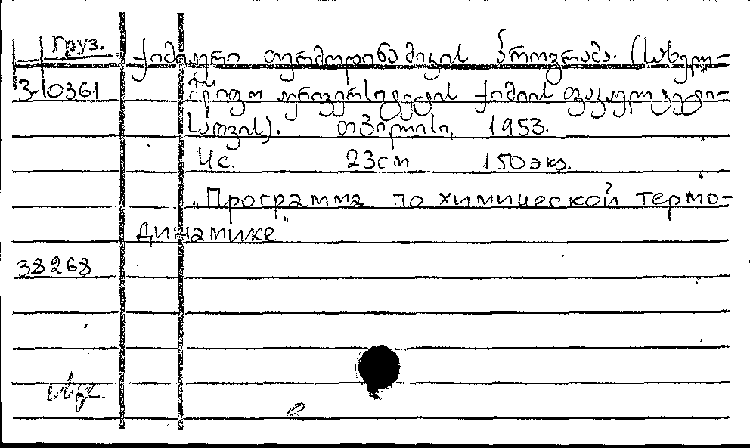 Груз.
ქიმიური თერმოდინამიკის პროგრამა. (სახელმ-
3-10361
წიფო უნივერსიტეტის ქიმიის ფაკულტეტი-
სათვის). თბილისი, 1953.
4с. 23см 150экз.
"Программа по химической термо-
динамике"
38268